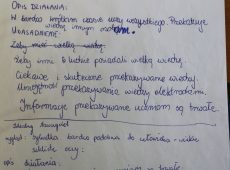 OPIS DZIAŁANIA:
W bardzo krótkim czasie uczy wszystkiego. Przekazuje
wiedzę innym
UZASADNIENIE:
Żeby mieć wielką wiedzę.
Żeby inni ludzie posiadali wielką wiedzę.
Ciekawe i skuteczne przekazywanie wiedzy.
Umiejętność przekazywania wiedzy
Informacje przekazywane uczniom są trwałe.
Idealny Nauczyciel
wygląd: sylwetka bardzo podobna do człowieka - wielkie
oczy.
opis działania: